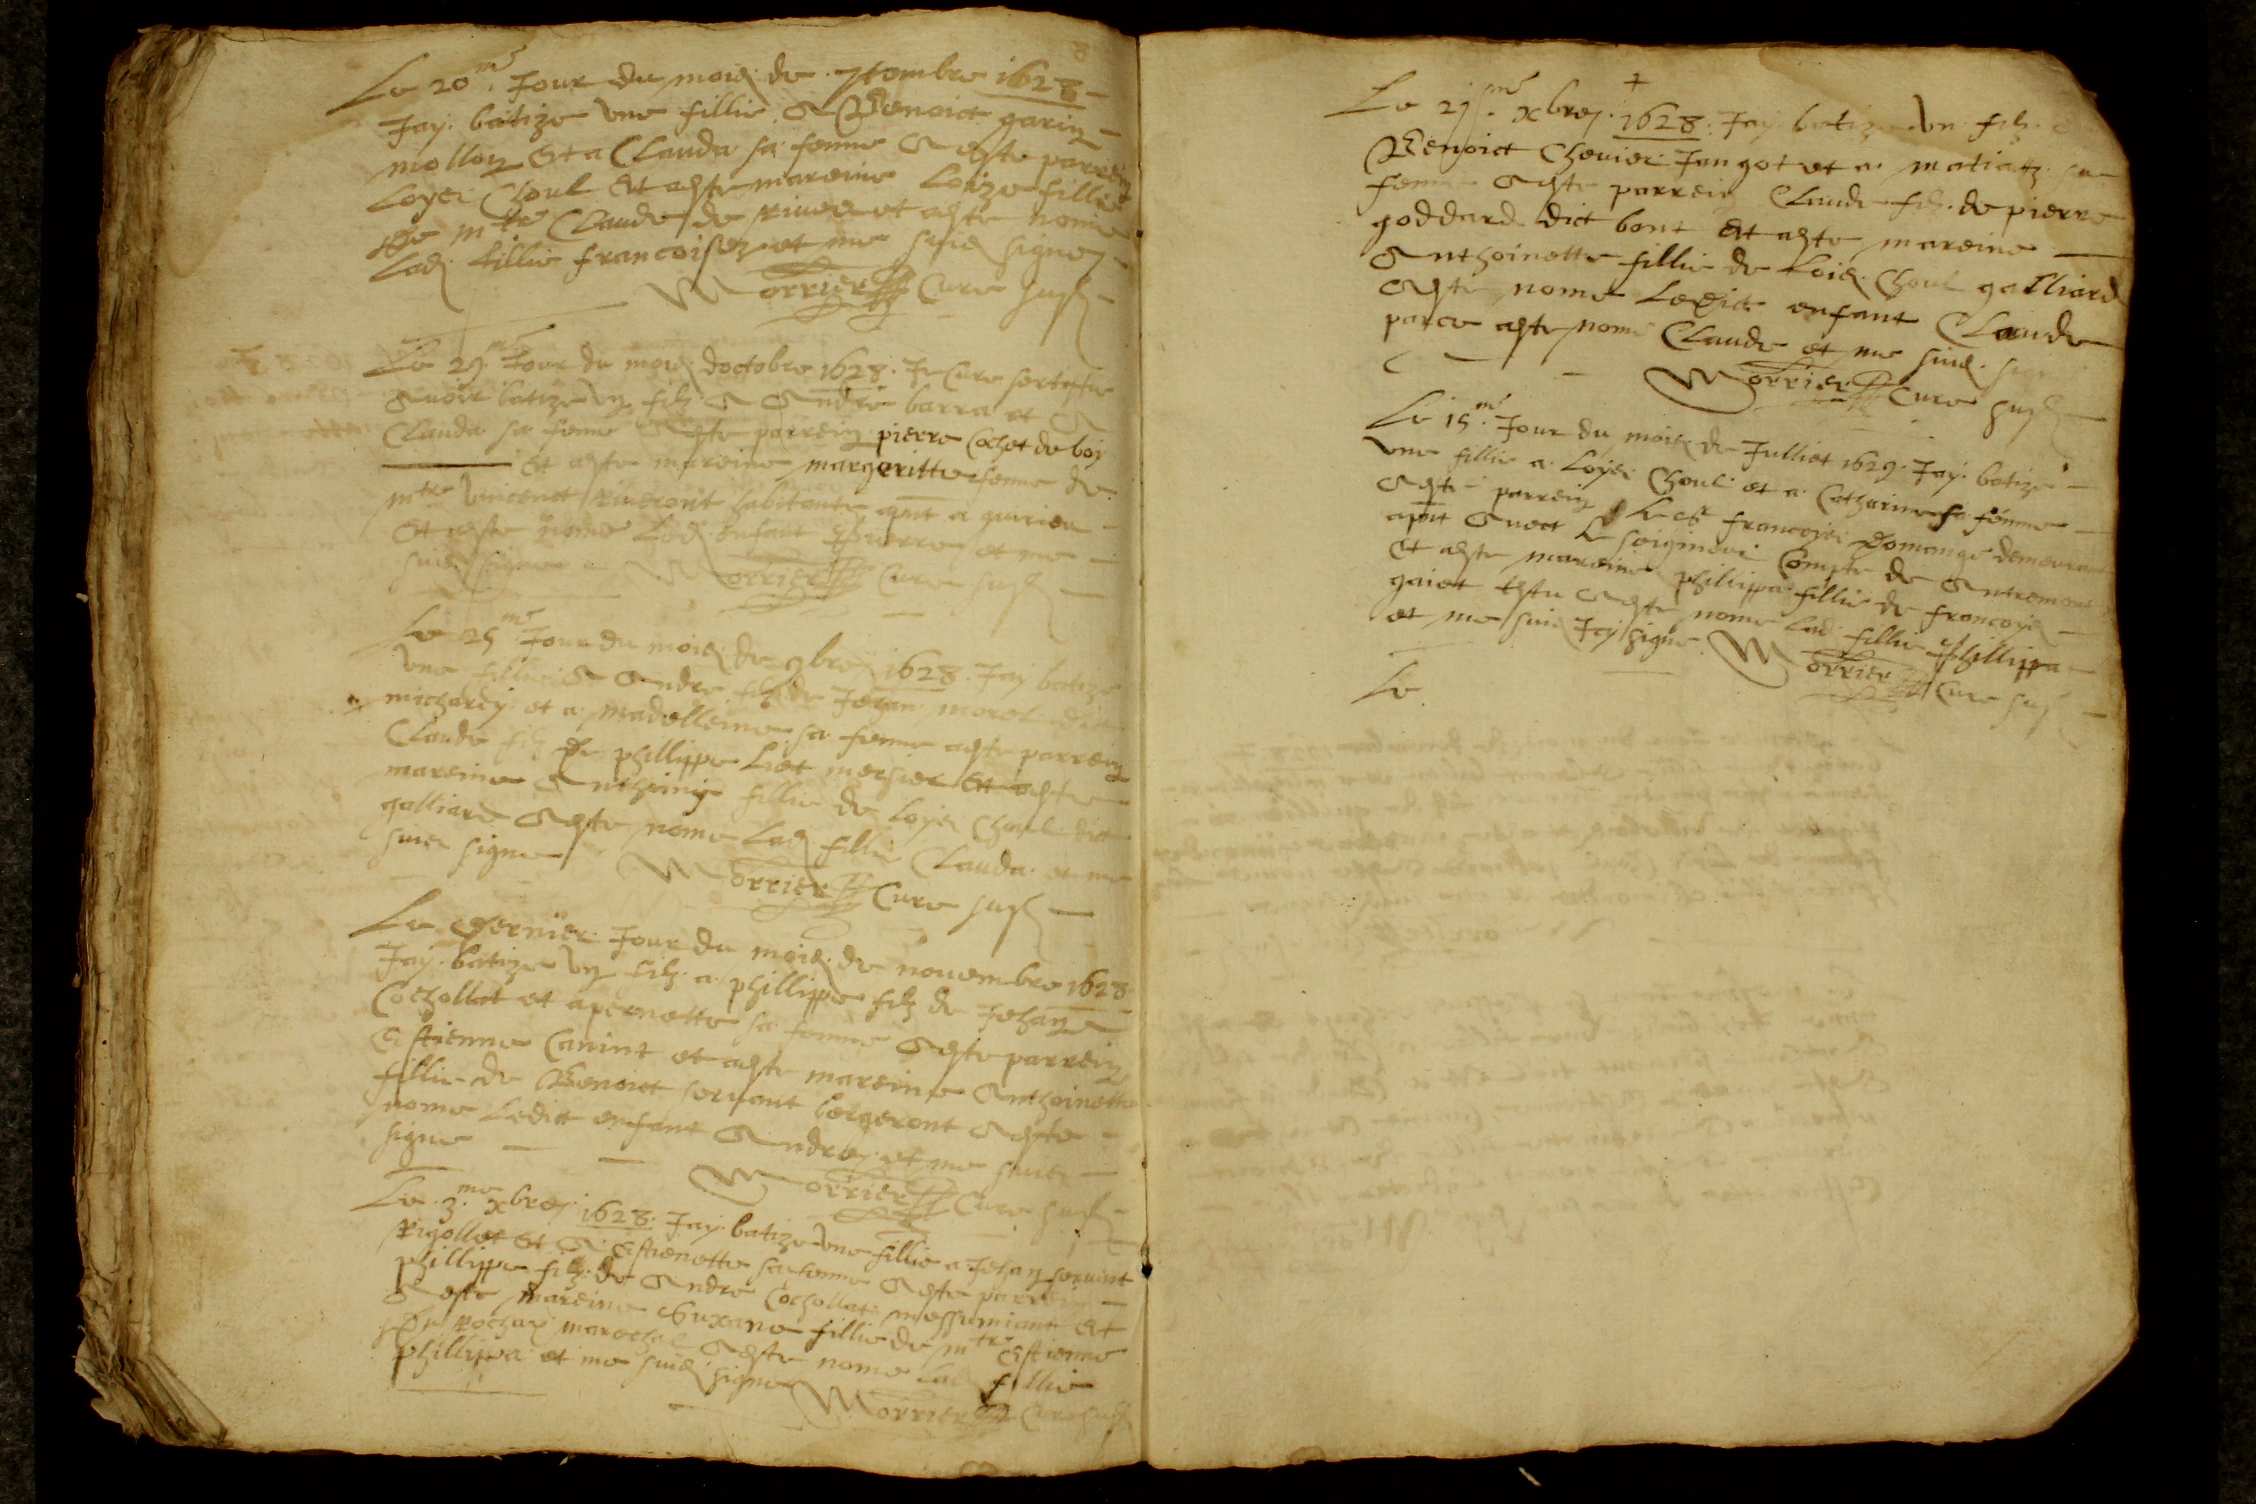 Le 20.me Jour du mois de 7tembre 1628
Jay batize une fillie A Benoict garin
mollon Et a Clauda sa femme A este parrein
Loyei Choul Et aeste mareine Loize fillie
De mtre Claude de riuoe et aeste nome
Lad. fillie francoise et me suis signe
Morrier Cure susd
Le 29.me Jour du mois doctobre 1628. Je Cure sertifie
Auoir batize un filz A Andre barra et A
Clauda sa feme A este parrein pierre Cochet de boy
Et aeste mareine margeritte feme de
mtre Vincent riueront habitante apnt a quirieu
Et aeste nome Led. enfant Pierre et me
suis signe Morrier Cure susd
Le 25.me Jour du mois de 9bre 1628. Jay batize
une fillie A Andre filz de Jehan morel dict
michardy et a madelleine sa feme aeste parrein
Claude filz De phillippe Liet mersier Et aeste
mareine Anthoiny fillie de Loyei Choul dict
galliard A este nome Lad. fillie Clauda et me
suis signe Morrier Cure susd
Le Dernier Jour du mois de nouembre 1628
Jay batize un filz a phillippe filz de Jehan
Cochollat et a pernette sa feme A este parrein
Estienne Canint et aeste mareine Anthoinette
fillie de Benoict seruant bergeront A este
nome Ledict enfant Andre et me suis
signe
Morrier Cure susd
Le 3.me xbre 1628. Jay batize une fillie a Jehan seruint
Rigollet Et A Estienette sa feme A este parrein
phillippe filz de Andre Cochollat messumiant Et
A este mareine Suxane fillie de mtre Estienne
Du rochay marechal A este nome Lad fillie
phillippa et me suis signe Morrier Cure susd
Le 21.me xbre 1628. Jay batize un filz
Benoict Cheuier Jangot et a matiatz sa
femme A este parrein Claude filz de pierre
goddard dict bont Et aeste mareine
Anthoinette fillie de Loies Choul galliard
A este nome Ledict enfant Claude
parce aeste nome Claude et me suis
Morrier Cure susd
Le 15.me Jour du mois de Julliet 1629. Jay batize
une fillie a Loyei Choul et a Catharine sa femme
A este parrein Le Sr francoyei Domange demeurant
apnt Auect Le seigineur Compte de Antremont
Et aeste mareine phillippa fillie de francoyes
gaiet testu A este nome Lad fillie Phillippa
et me suis Jcy signe. Morrier Cure susd
Le